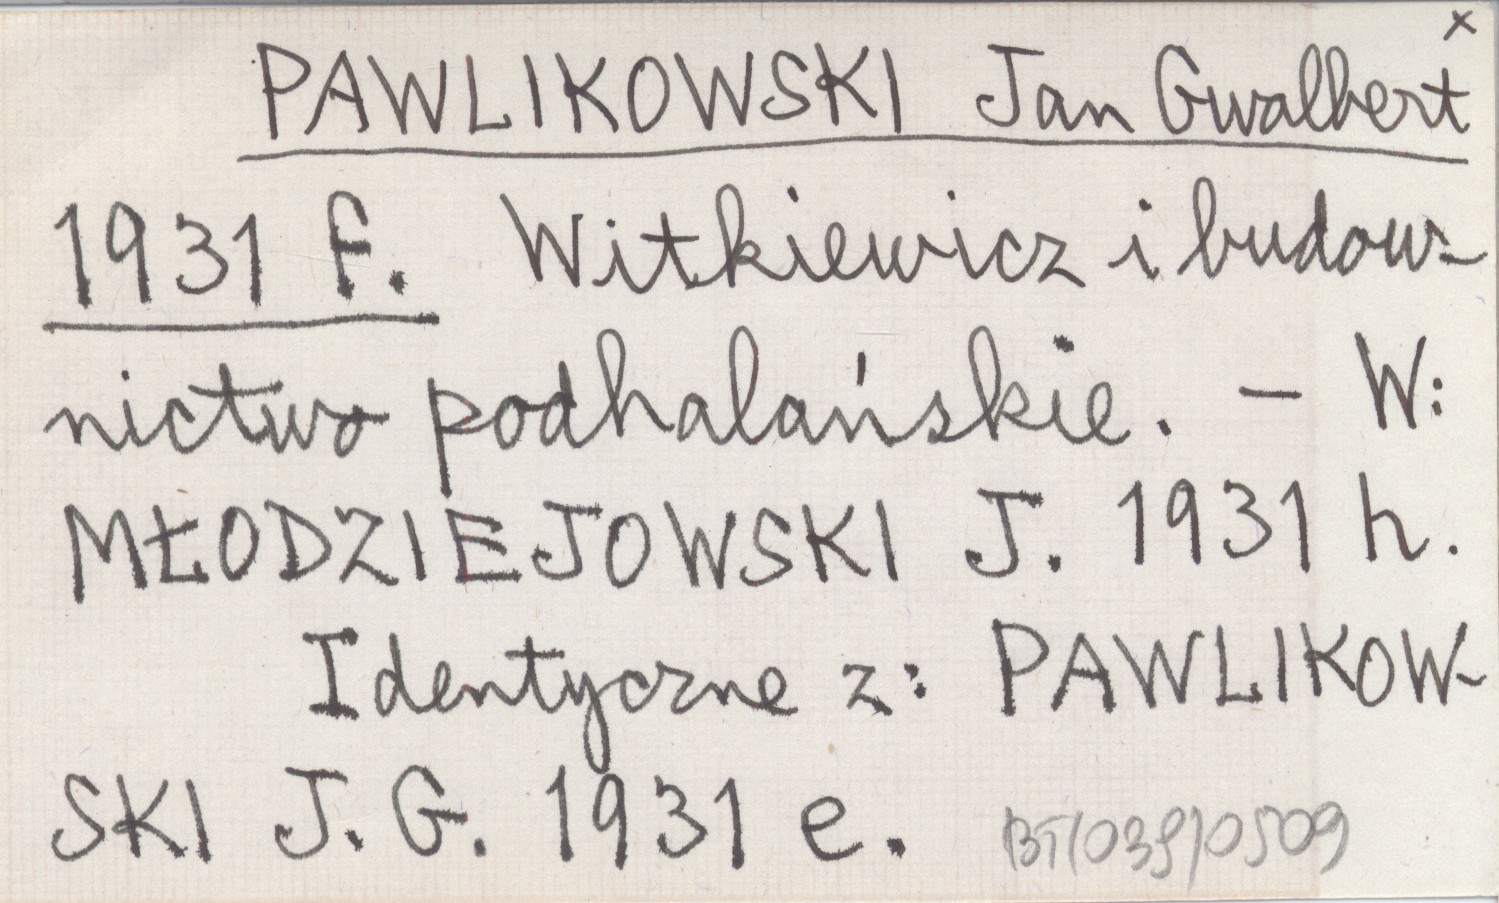 x
PAWLIKOWSKI Jan Gwalbert
1931 f. Witkiewicz i budow-
nictwo podhalańskie. – W:
MŁODZIEJOWSKI J. 1931 h.
Identyczne z: PAWLIKOW-
SKI J. G. 1931 e.
BT/039/0509